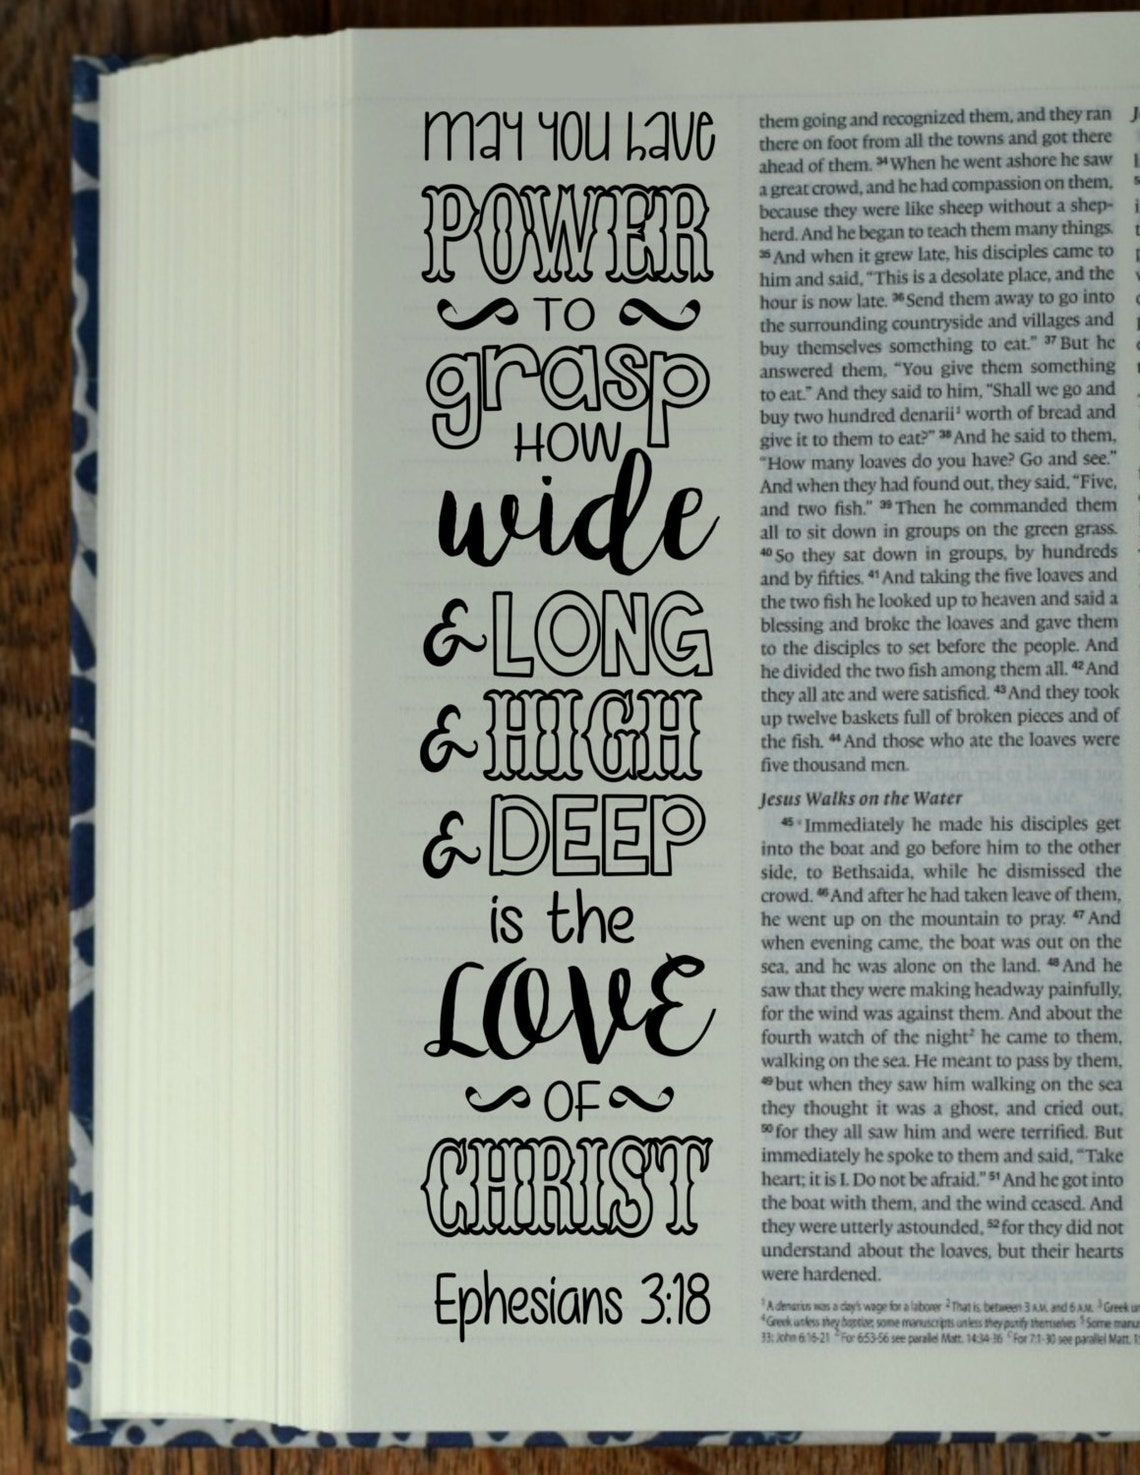 may you have
POWER
TO
grasp
HOW
wide
& LONG
& HIGH
& DEEP
is the
LOVE
OF
CHRIST
Ephesians 3:18
them going and recognized them, and they ran
there on foot from all the towns and got there
ahead of them. 34 When he went ashore he saw
a great crowd, and he had compassion on them,
because they were like sheep without a shep-
herd. And he began to teach them many things.
35 And when it grew late, his disciples came to
him and said, “This is a desolate place, and the
hour is now late. 36 Send them away to go into
the surrounding countryside and villages and
buy themselves something to eat.” 37 But he
answered them, “You give them something
to eat.” And they said to him, “Shall we go and
buy two hundred denarii¹ worth of bread and
give it to them to eat?” 38 And he said to them,
“How many loaves do you have? Go and see.”
And when they had found out, they said, “Five,
and two fish.” 39 Then he commanded them
all to sit down in groups on the green grass.
40 So they sat down in groups, by hundreds
and by fifties. 41 And taking the five loaves and
the two fish he looked up to heaven and said a
blessing and broke the loaves and gave them
to the disciples to set before the people. And
he divided the two fish among them all. 42 And
they all ate and were satisfied. 43 And they took
up twelve baskets full of broken pieces and of
the fish. 44 And those who ate the loaves were
five thousand men.
Jesus Walks on the Water
45 Immediately he made his disciples get
into the boat and go before him to the other
side, to Bethsaida, while he dismissed the
crowd. 46 And after he had taken leave of them,
he went up on the mountain to pray. 47 And
when evening came, the boat was out on the
sea, and he was alone on the land. 48 And he
saw that they were making headway painfully,
for the wind was against them. And about the
fourth watch of the night² he came to them,
walking on the sea. He meant to pass by them,
49 but when they saw him walking on the sea
they thought it was a ghost, and cried out,
50 for they all saw him and were terrified. But
immediately he spoke to them and said, “Take
heart; it is I. Do not be afraid.” 51 And he got into
the boat with them, and the wind ceased. And
they were utterly astounded, 52 for they did not
understand about the loaves, but their hearts
were hardened.
¹ A denarius was a day's wage for a laborer ² That is, between 3 A.M. and 6 A.M. ³ Greek
⁴ Greek unless they baptize; some manuscripts unless they purify themselves ⁵ Some
33; John 6:16-21 For 6:53-56 see parallel Matt. 14:34-36 For 7:1-30 see parallel Matt.